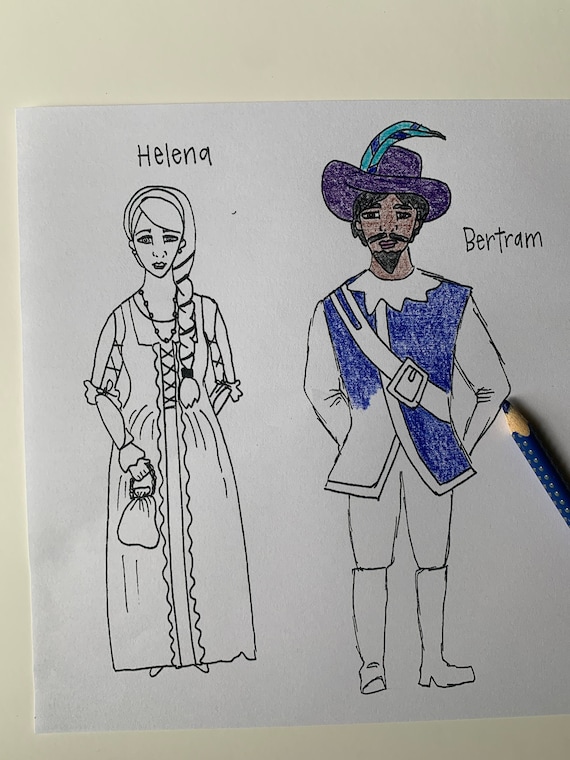 Helena
Bertram